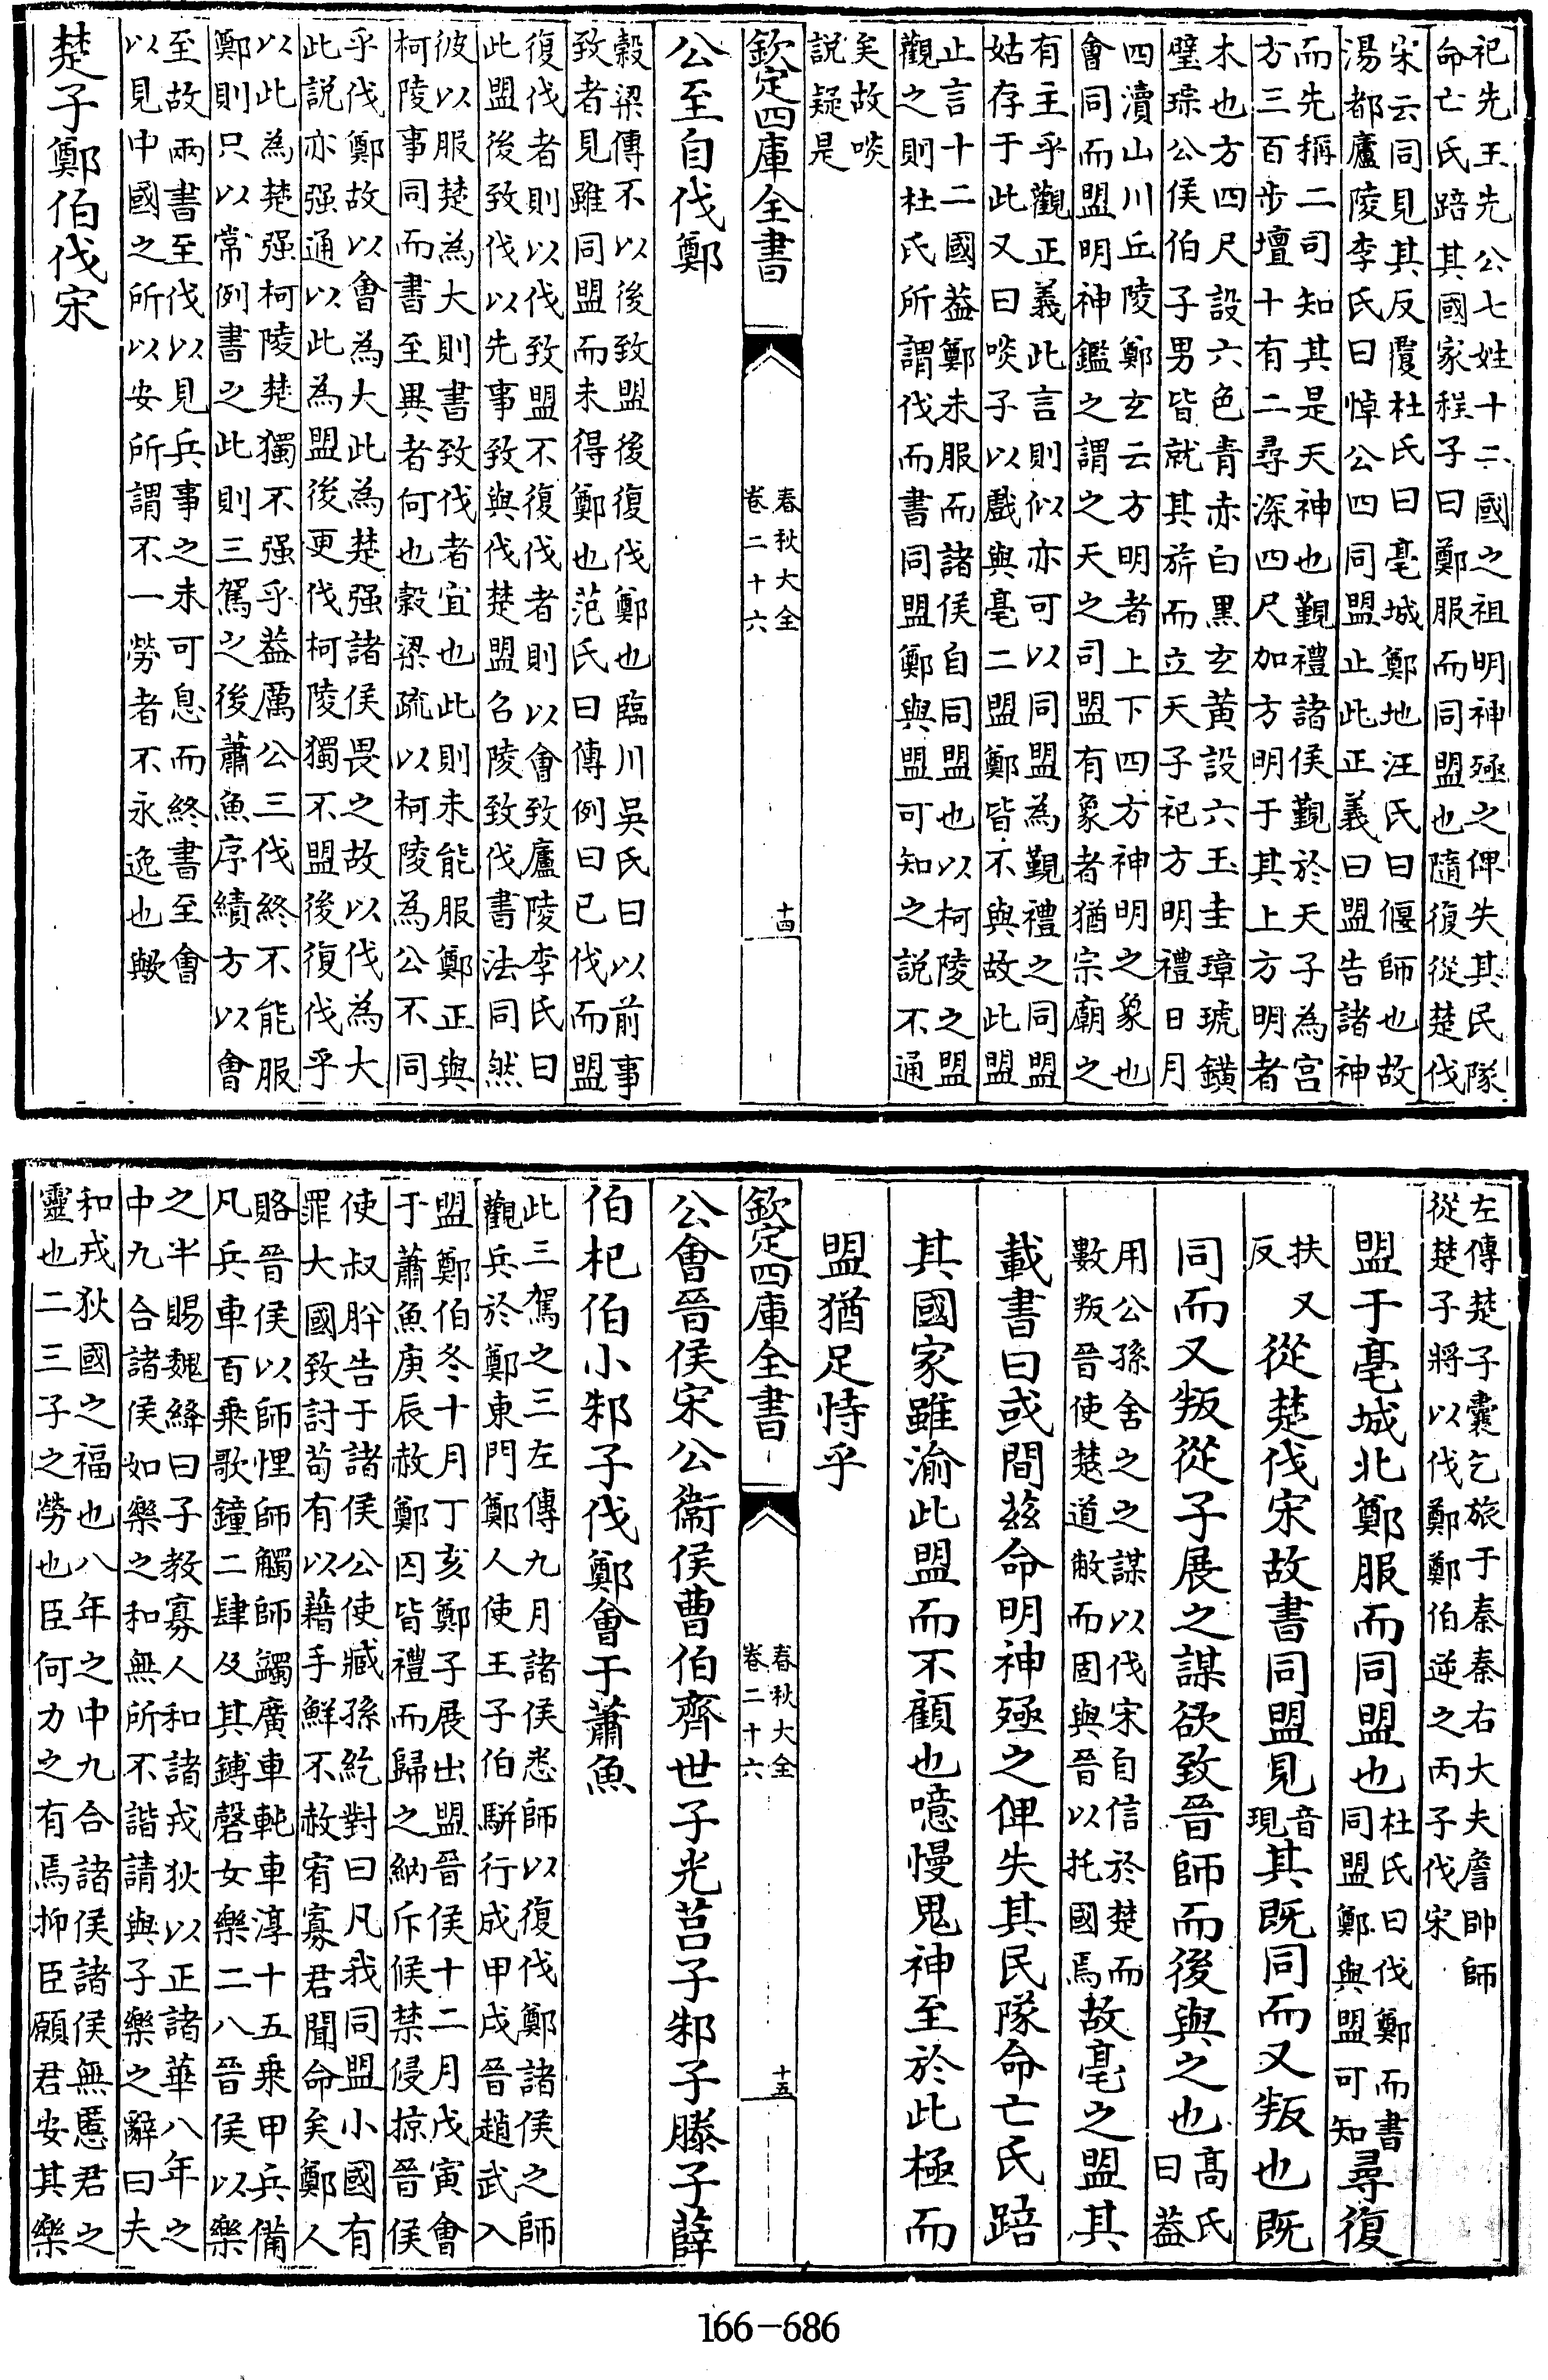 祀先王先公七姓十二國之祖明神殛之俾失其民隊
命亡氏踣其國家程子曰鄭服而同盟也隨復從楚伐
宋云同見其反覆杜氏曰亳城鄭地汪氏曰偃師也故
湯都廬陵李氏曰悼公四同盟止此正義曰盟告諸神
而先稱二司知其是天神也觐禮諸侯覲於天子為宫
方三百步壇十有二尋深四尺加方明于其上方明者
木也方四尺設六色青赤白黑玄黄設六玉圭璋琥鐄
璧琮公侯伯子男皆就其旂而立天子祀方明禮日月
四瀆山川丘陵鄭玄云方明者上下四方神明之象也
會同而盟明神鑑之謂之天之司盟有象者猶宗廟之
有主乎觀正義此言則似亦可以同盟為覲禮之同盟
姑存于此又曰啖子以戲與亳二盟鄭皆不與故此盟
止言十二國葢鄭未服而諸侯自同盟也以柯陵之盟
觀之則杜氏所謂伐而書同盟鄭與盟可知之説不通
矣故啖
説疑是
欽定四庫全書
春秋大全
卷二十六
十四
公至自伐鄭
穀梁傳不以後致盟後復伐鄭也臨川吳氏曰以前事
致者見雖同盟而未得鄭也范氏曰傳例曰已伐而盟
復伐者則以伐致盟不復伐者則以會致廬陵李氏曰
此盟後致伐以先事致與伐楚盟召陵致伐書法同然
彼以服楚為大則書致伐者宜也此則未能服鄭正與
柯陵事同而書至異者何也穀梁疏以柯陵為公不同
乎伐鄭故以會為大此為楚强諸侯畏之故以伐為大
此説亦强通以此為盟後更伐柯陵獨不盟後復伐乎
以此為楚强柯陵楚獨不强乎葢厲公三伐終不能服
鄭則只以常例書之此則三駕之後蕭魚序績方以會
至故兩書至伐以見兵事之未可息而終書至會
以見中國之所以安所謂不一勞者不永逸也歟
楚子鄭伯伐宋
左傳楚子囊乞旅于秦秦右大夫詹帥師
從楚子將以伐鄭鄭伯逆之丙子伐宋
盟于亳城北鄭服而同盟也杜氏曰伐鄭而書
同盟鄭與盟可知尋復
扶又
反從楚伐宋故書同盟見音
現其既同而又叛也既
同而又叛從子展之謀欲致晉師而後與之也髙氏
曰葢
用公孫舍之之謀以伐宋自信於楚而
數叛晉使楚道敝而固與晉以托國焉故亳之盟其
載書曰或間茲命明神殛之俾失其民隊命亡氏踣
其國家雖渝此盟而不顧也噫慢鬼神至於此極而
盟猶足恃乎
欽定四庫全書
春秋大全
卷二十六
十五
公會晉侯宋公衞侯曹伯齊世子光莒子邾子滕子薛
伯杞伯小邾子伐鄭會于蕭魚
此三駕之三左傳九月諸侯悉師以復伐鄭諸侯之師
觀兵於鄭東門鄭人使王子伯駢行成甲戌晉趙武入
盟鄭伯冬十月丁亥鄭子展出盟晉侯十二月戊寅會
于蕭魚庚辰赦鄭囚皆禮而歸之納斥候禁侵掠晉侯
使叔肸告于諸侯公使臧孫紇對曰凡我同盟小國有
罪大國致討茍有以藉手鮮不赦宥寡君聞命矣鄭人
賂晉侯以師悝師觸師蠲廣車軘車淳十五乘甲兵備
凡兵車百乘歌鐘二肆及其鎛磬女樂二八晉侯以樂
之半賜魏絳曰子教寡人和諸戎狄以正諸華八年之
中九合諸侯如樂之和無所不諧請與子樂之辭曰夫
和戎狄國之福也八年之中九合諸侯諸侯無慝君之
靈也二三子之勞也臣何力之有焉抑臣願君安其樂
166-686